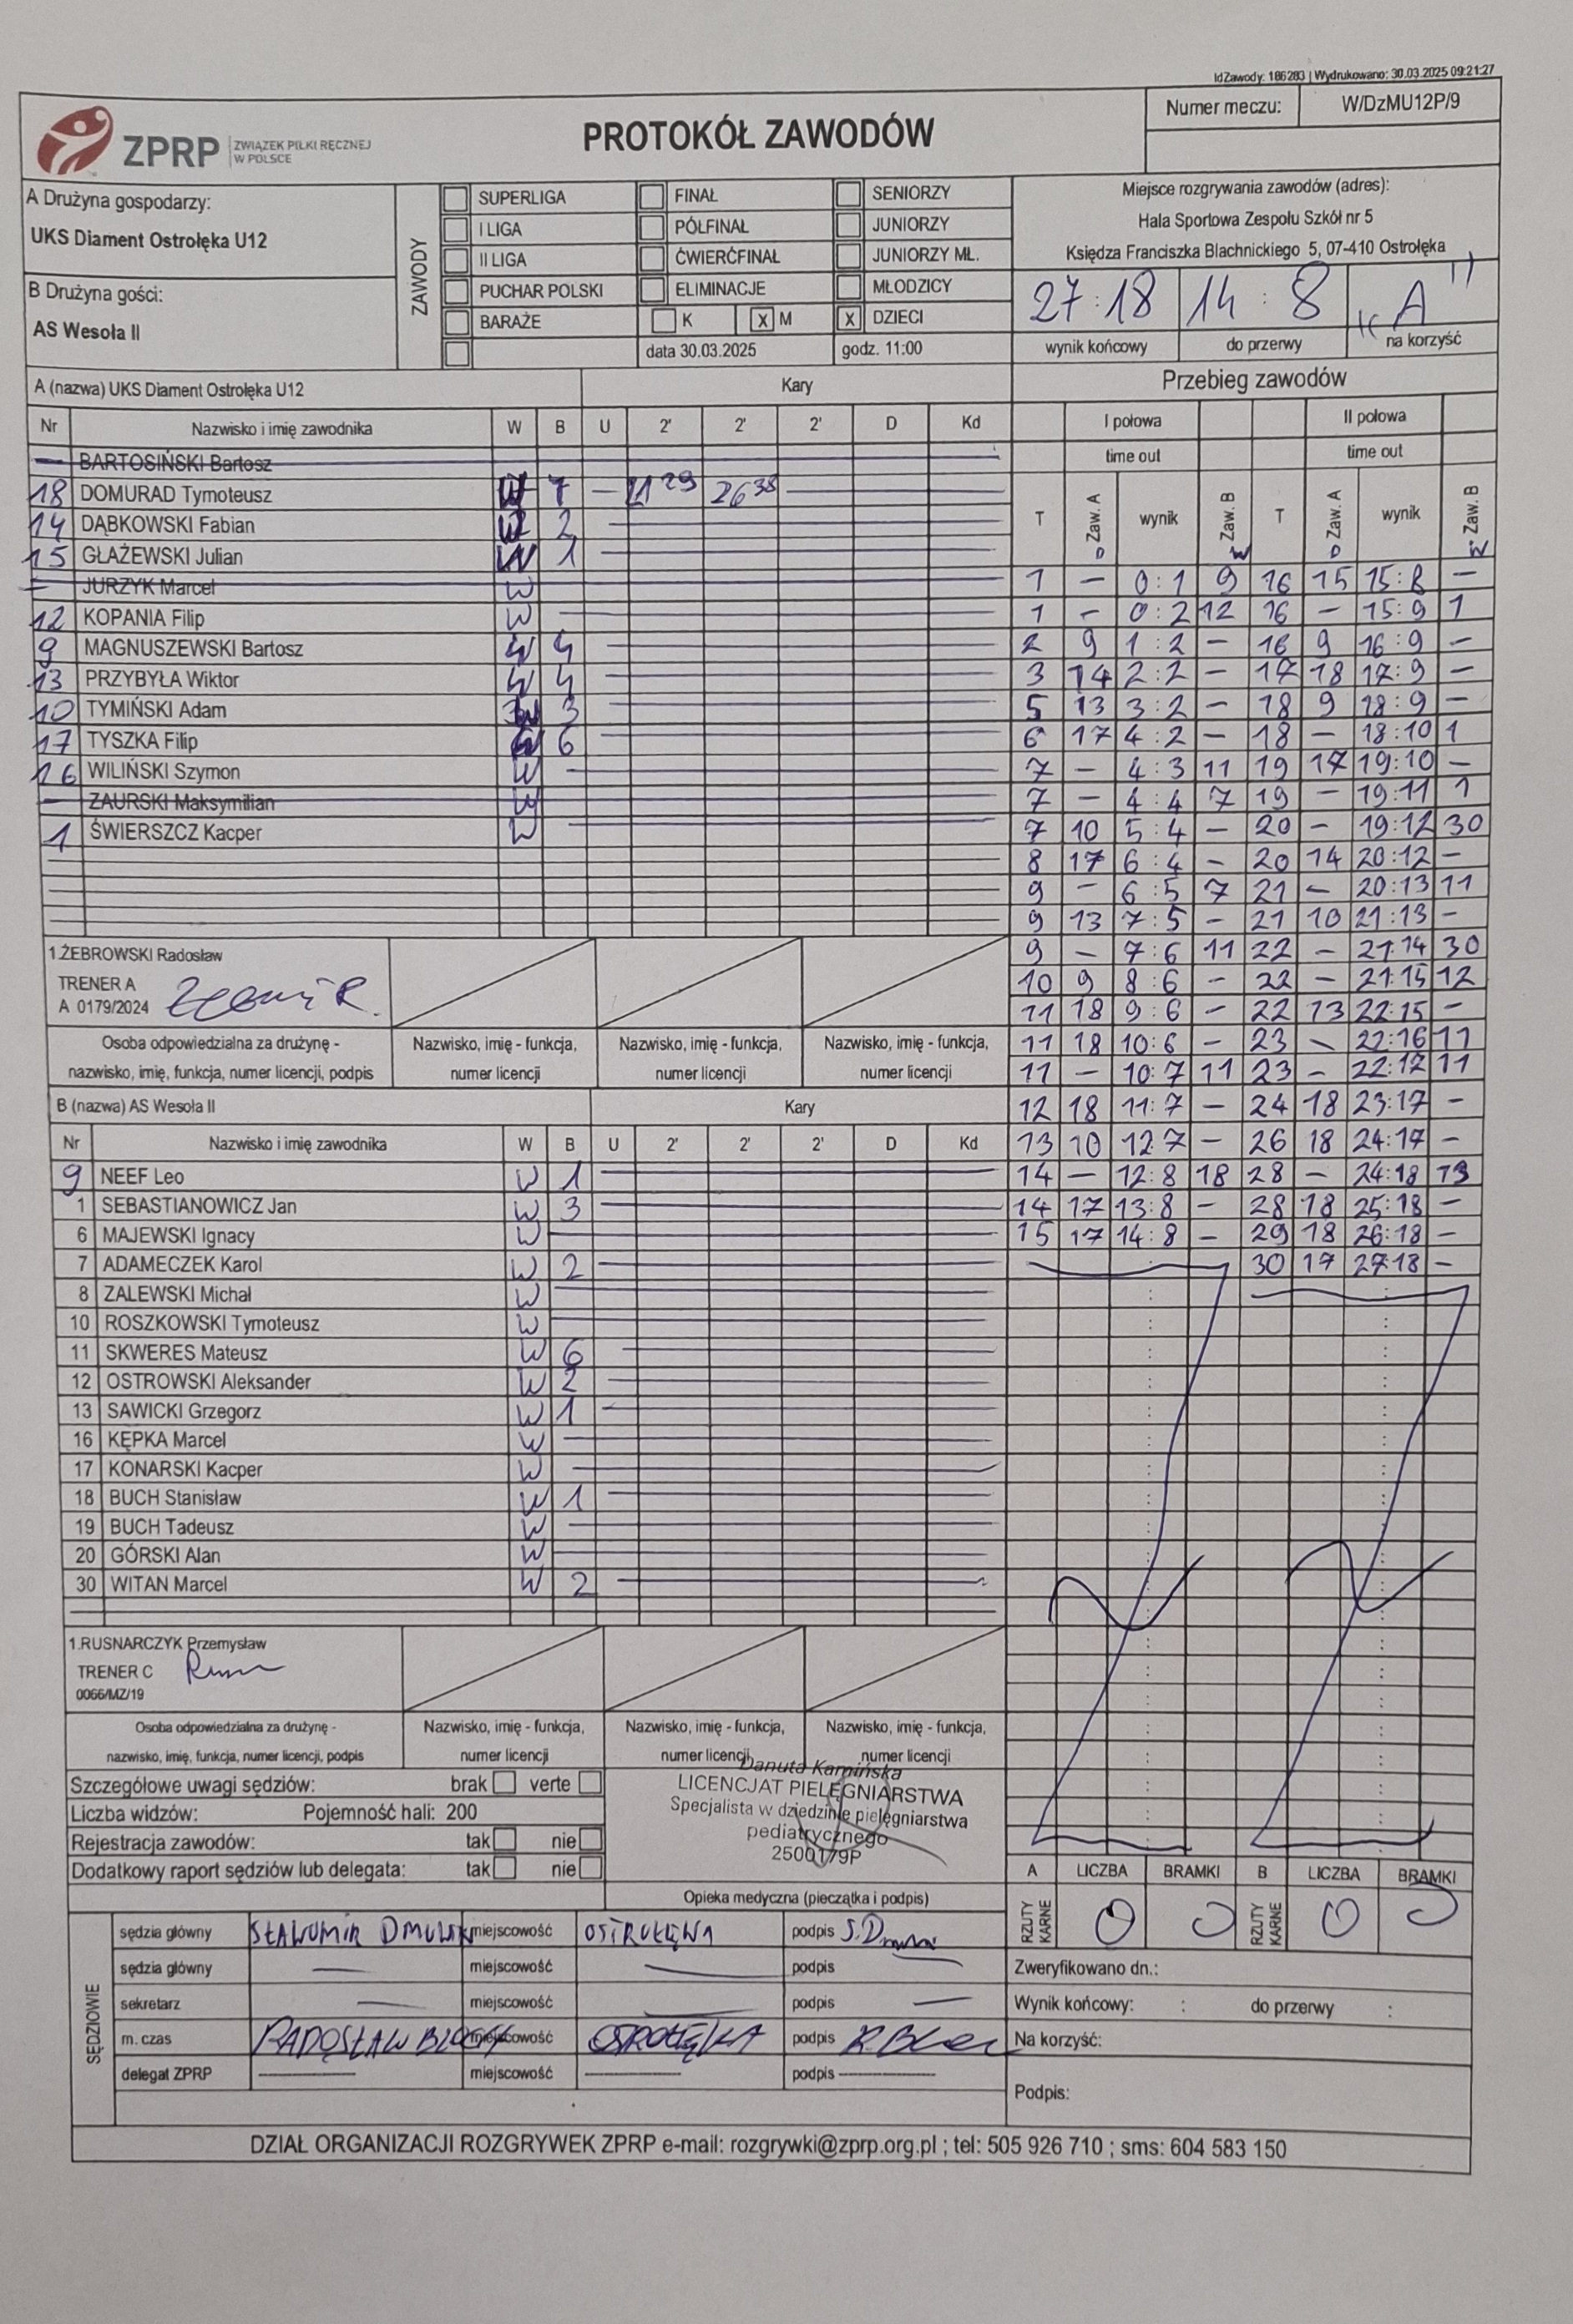 IdZawody: 186283 | Wydrukowano: 30.03.2025 09:21:27
ZPRP ZWIĄZEK PIŁKI RĘCZNEJ W POLSCE
PROTOKÓŁ ZAWODÓW
Numer meczu: W/DzMU12P/9
A Drużyna gospodarzy:
UKS Diament Ostrołęka U12
B Drużyna gości:
AS Wesoła II
ZAWODY
SUPERLIGA FINAŁ SENIORZY
I LIGA PÓŁFINAŁ JUNIORZY
II LIGA ĆWIERĆFINAŁ JUNIORZY MŁ.
PUCHAR POLSKI ELIMINACJE MŁODZICY
BARAŻE K X M X DZIECI
data 30.03.2025 godz. 11:00
Miejsce rozgrywania zawodów (adres):
Hala Sportowa Zespołu Szkół nr 5
Księdza Franciszka Blachnickiego 5, 07-410 Ostrołęka
27:18 14:8 "A"
wynik końcowy do przerwy na korzyść
A (nazwa) UKS Diament Ostrołęka U12 Kary
Nr Nazwisko i imię zawodnika W B U 2' 2' 2' D Kd
— BARTOSIŃSKI Bartosz
18 DOMURAD Tymoteusz W 7 — 21 29 26 38
14 DĄBKOWSKI Fabian W 2
15 GŁAŻEWSKI Julian W 1
— JURZYK Marcel W
12 KOPANIA Filip W
9 MAGNUSZEWSKI Bartosz W 4
13 PRZYBYŁA Wiktor W 4
10 TYMIŃSKI Adam W 3
17 TYSZKA Filip W 6
16 WILIŃSKI Szymon W
— ZAURSKI Maksymilian W
1 ŚWIERSZCZ Kacper W
1.ŻEBROWSKI Radosław
TRENER A
A 0179/2024
Osoba odpowiedzialna za drużynę -
nazwisko, imię, funkcja, numer licencji, podpis
Nazwisko, imię - funkcja, numer licencji
Nazwisko, imię - funkcja, numer licencji
Nazwisko, imię - funkcja, numer licencji
B (nazwa) AS Wesoła II Kary
Nr Nazwisko i imię zawodnika W B U 2' 2' 2' D Kd
9 NEEF Leo W 1
1 SEBASTIANOWICZ Jan W 3
6 MAJEWSKI Ignacy W
7 ADAMECZEK Karol W 2
8 ZALEWSKI Michał W
10 ROSZKOWSKI Tymoteusz W
11 SKWERES Mateusz W 6
12 OSTROWSKI Aleksander W 2
13 SAWICKI Grzegorz W 1
16 KĘPKA Marcel W
17 KONARSKI Kacper W
18 BUCH Stanisław W 1
19 BUCH Tadeusz W
20 GÓRSKI Alan W
30 WITAN Marcel W 2
1.RUSNARCZYK Przemysław
TRENER C
0066/MZ/19
Osoba odpowiedzialna za drużynę -
nazwisko, imię, funkcja, numer licencji, podpis
Nazwisko, imię - funkcja, numer licencji
Nazwisko, imię - funkcja, numer licencji
Nazwisko, imię - funkcja, numer licencji
Przebieg zawodów
I połowa II połowa
time out time out
T Zaw. A wynik Zaw. B T Zaw. A wynik Zaw. B
1 — 0:1 9 16 15 15:8 —
1 — 0:2 12 16 — 15:9 1
2 9 1:2 — 16 9 16:9 —
3 14 2:2 — 17 18 17:9 —
5 13 3:2 — 18 9 18:9 —
6 17 4:2 — 18 — 18:10 1
7 — 4:3 11 19 17 19:10 —
7 — 4:4 7 19 — 19:11 1
7 10 5:4 — 20 — 19:12 30
8 17 6:4 — 20 14 20:12 —
9 — 6:5 7 21 — 20:13 11
9 13 7:5 — 21 10 21:13 —
9 — 7:6 11 22 — 21:14 30
10 9 8:6 — 22 — 21:15 12
11 18 9:6 — 22 13 22:15 —
11 18 10:6 — 23 — 22:16 11
11 — 10:7 11 23 — 22:17 11
12 18 11:7 — 24 18 23:17 —
13 10 12:7 — 26 18 24:17 —
14 — 12:8 18 28 — 24:18 13
14 17 13:8 — 28 18 25:18 —
15 17 14:8 — 29 18 26:18 —
30 17 27:18 —
Szczegółowe uwagi sędziów: brak verte
Liczba widzów: Pojemność hali: 200
Rejestracja zawodów: tak nie
Dodatkowy raport sędziów lub delegata: tak nie
Danuta Kamińska
LICENCJAT PIELĘGNIARSTWA
Specjalista w dziedzinie pielęgniarstwa
pediatrycznego
2500179P
Opieka medyczna (pieczątka i podpis)
A LICZBA BRAMKI B LICZBA BRAMKI
RZUTY KARNE 0 0 RZUTY KARNE 0 0
SĘDZIOWIE
sędzia główny SŁAWOMIR miejscowość OSTROŁĘKA podpis
sędzia główny — miejscowość — podpis
sekretarz — miejscowość — podpis —
m. czas RADOSŁAW miejscowość OSTROŁĘKA podpis
delegat ZPRP — miejscowość — podpis —
Zweryfikowano dn.:
Wynik końcowy: : do przerwy :
Na korzyść:
Podpis:
DZIAŁ ORGANIZACJI ROZGRYWEK ZPRP e-mail: rozgrywki@zprp.org.pl ; tel: 505 926 710 ; sms: 604 583 150